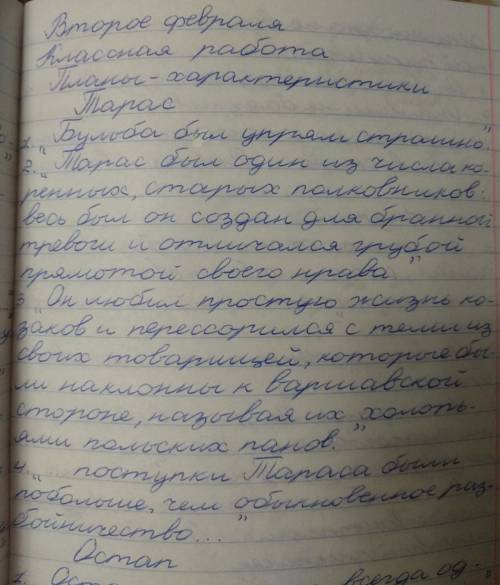 Второе февраля
Классная работа
Планы-характеристики
Тарас
1. „Бульба был упрям страшно."
2. „Тарас был один из числа ко-
ренных, старых полковников:
весь был он создан для бранной
тревоги и отличался грубой
прямотой своего нрава"
3 „Он любил простую жизнь ко-
заков и перессорился с теми из
своих товарищей, которые бы-
ли наклонны к варшавской
стороне, называя их холопь-
ями польских панов."
4. „ поступки Тараса были
побольше, чем обыкновенное раз-
бойничество..."
Остап
1. всегда од-